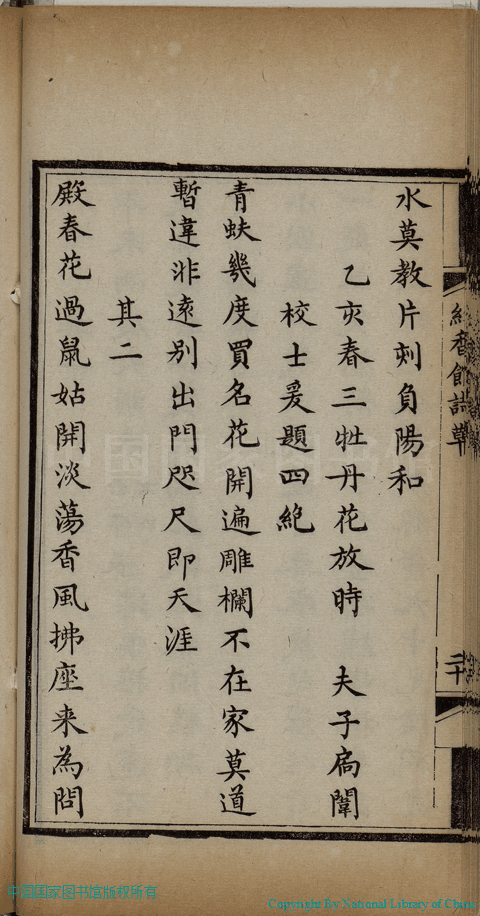 紅香館詩草
二十
水莫教片刻負陽和
乙亥春三牡丹花放時　夫子扃闈
校士爰題四絶
青蚨幾度買名花開遍雕欄不在家莫道
暫違非遠別出門咫尺即天涯
其二
殿春花過鼠姑開淡蕩香風拂座来為問
中国国家图书馆版权所有
Copyright By National Library of China